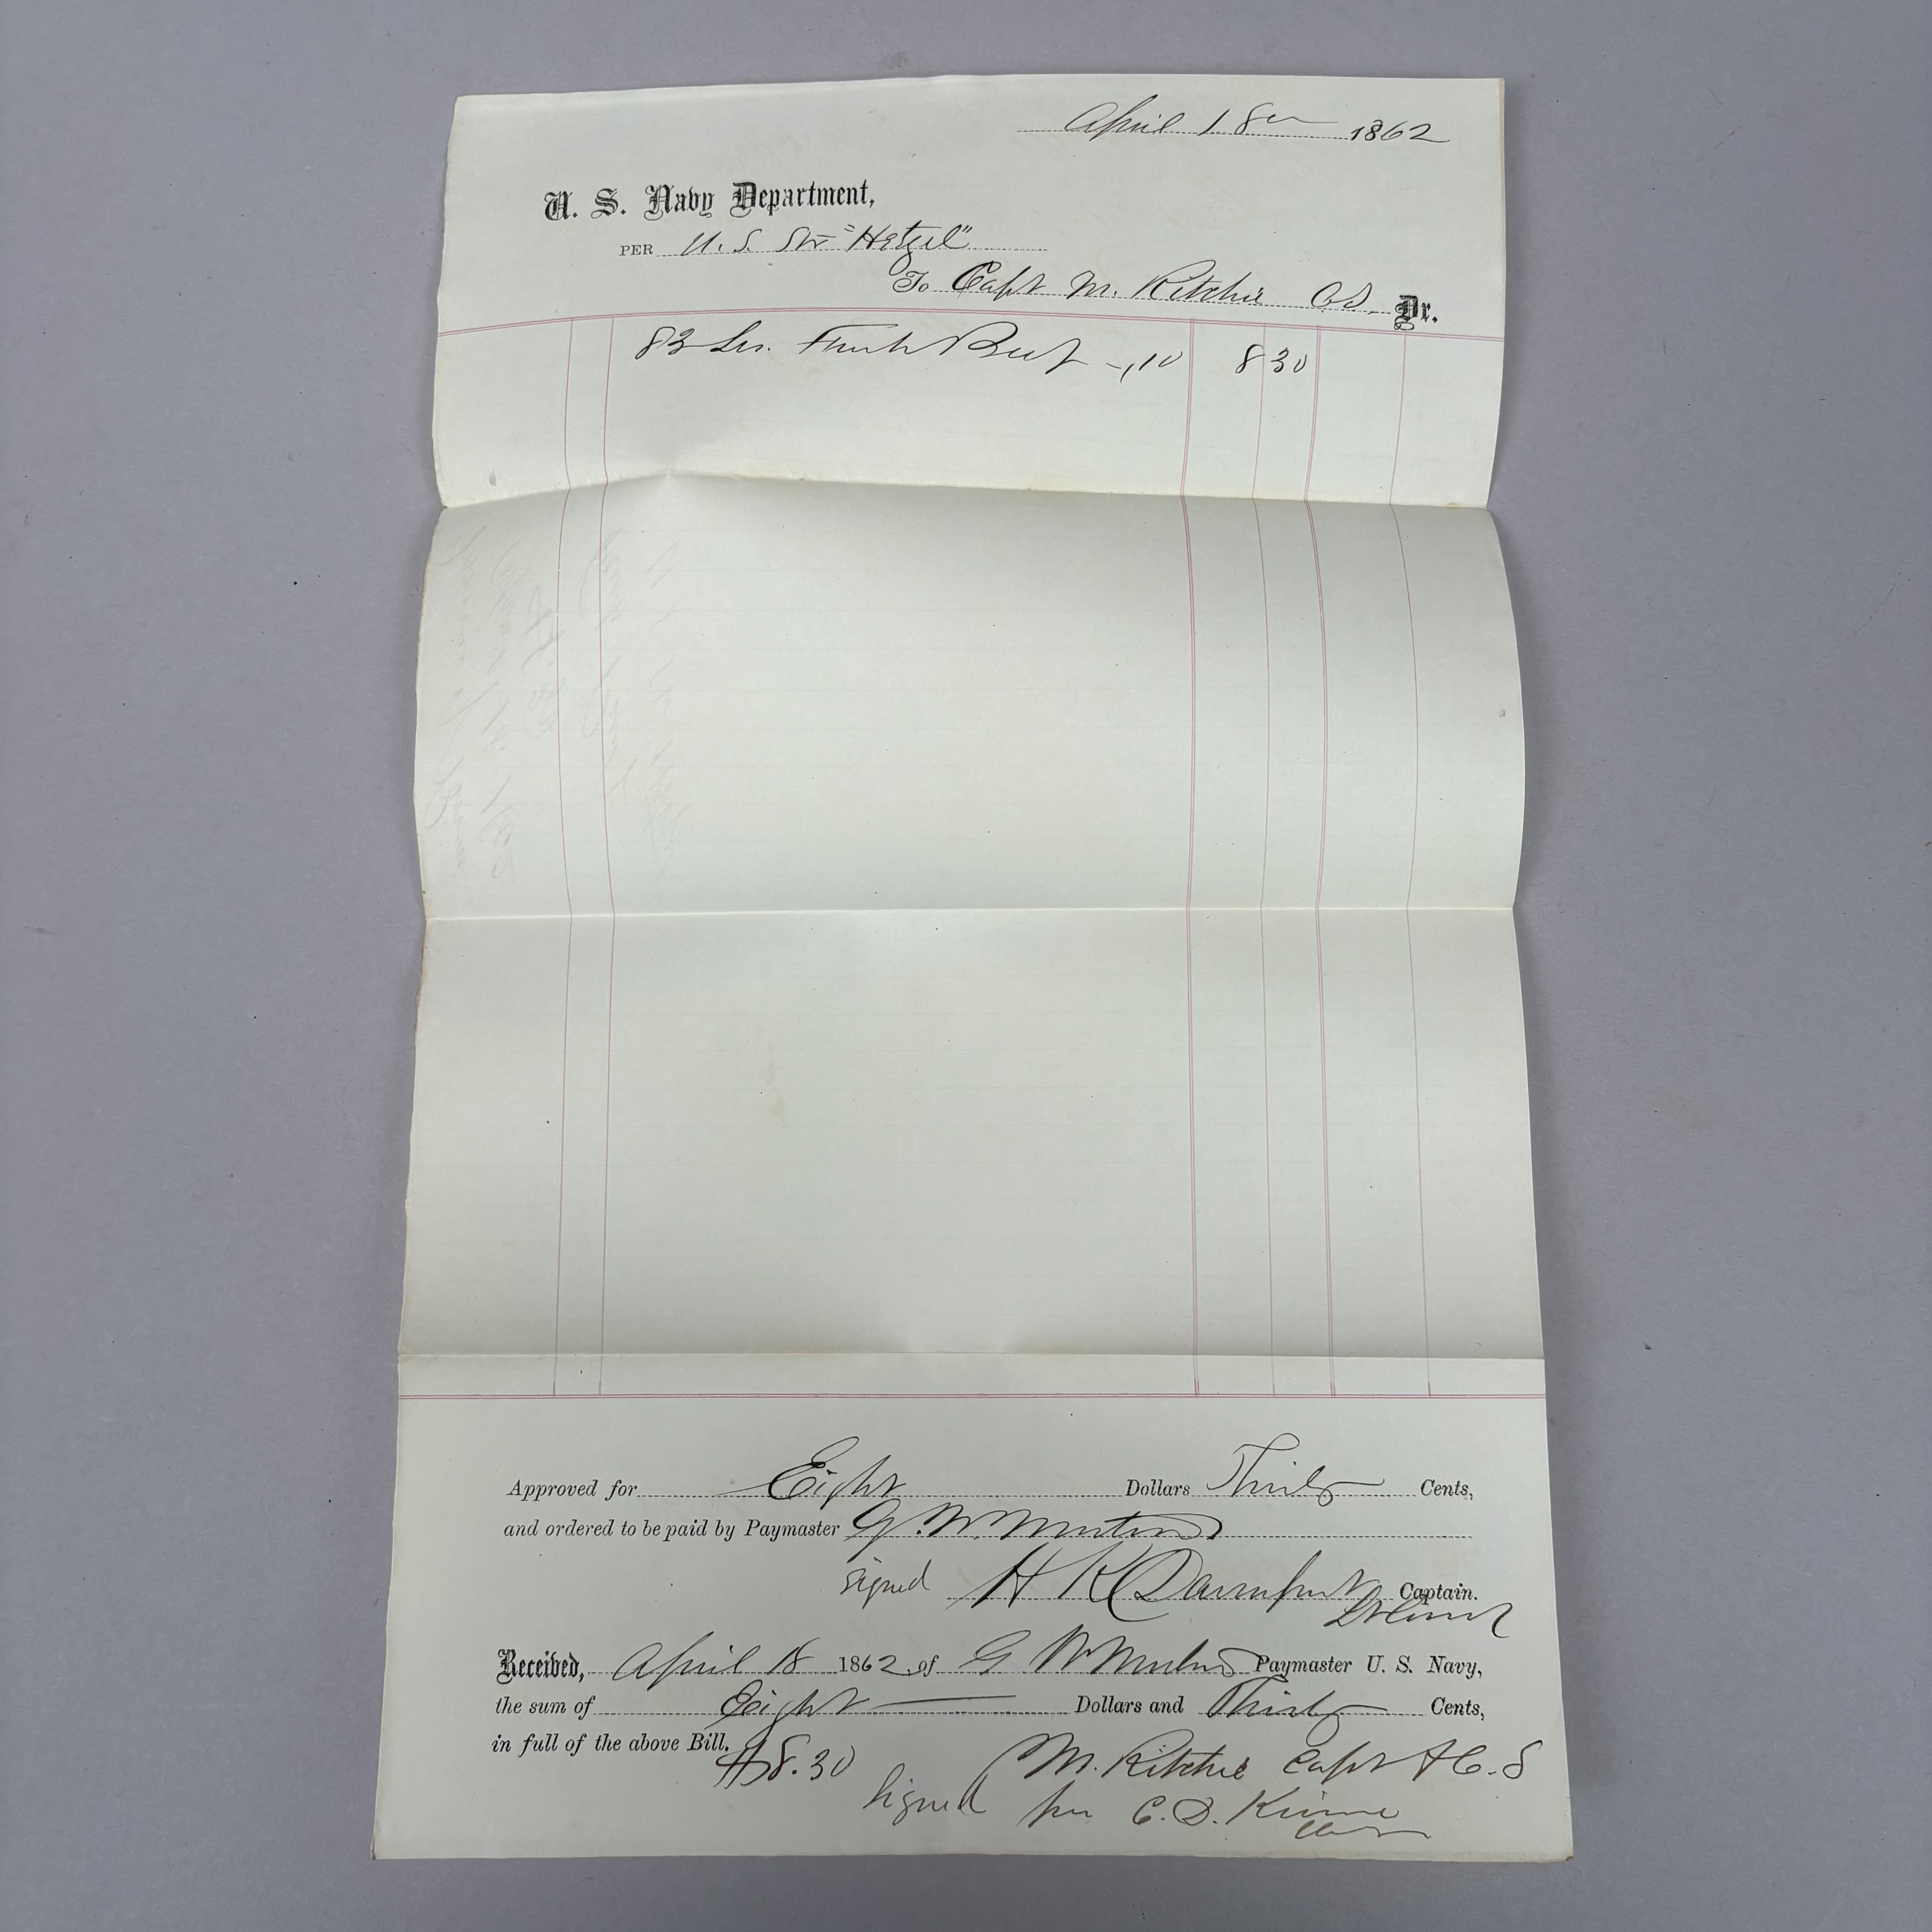 April 18th 1862
U. S. Navy Department,
PER U. S. Str "Hetzel"
To Capt M. Ritchie C.S. Dr.
83 Lbs. Fresh Beef -,10 8 30
Approved for Eight Dollars Thirty Cents,
and ordered to be paid by Paymaster G. W.
signed H K Davenport Captain.
Lt Comd
Received, April 18 1862 of G W Paymaster U. S. Navy,
the sum of Eight Dollars and Thirty Cents,
in full of the above Bill.
$8.30 M. Ritchie Capt & C.S
Signed per C. D.